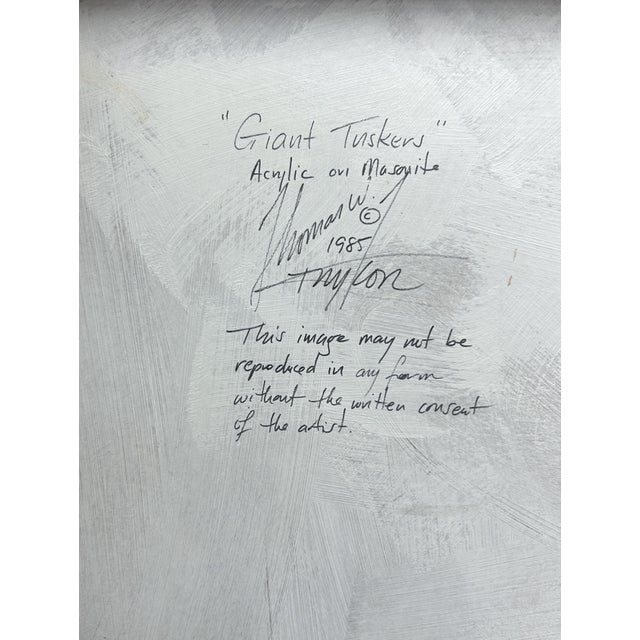 "Giant Tuskers"
Acrylic on Masonite
Thomas W.
©
1985
Taylor
This image may not be
reproduced in any form
without the written consent
of the artist.